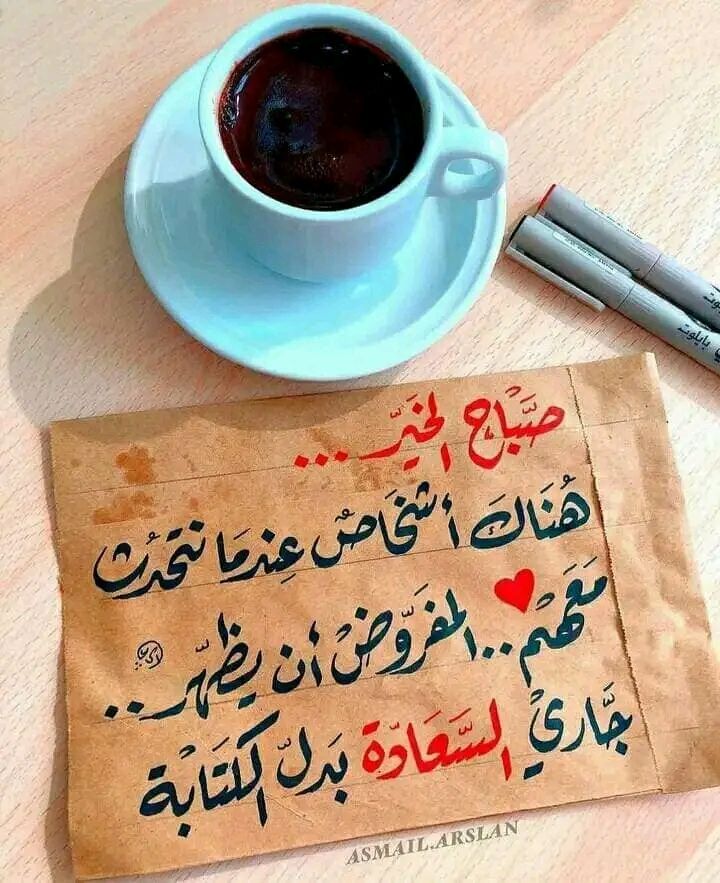 صَبَاحُ الخَيرِّ ...
هُنَاكَ أشخَاصٌ عِندمَا نتحَدثُ
مَعَهُمْ .. المفَرّوضْ أن يظهّر ..
جَّاريْ السَّعَادّة بَدلّ الكتَابْة
ASMAIL.ARSLAN
بايلوت